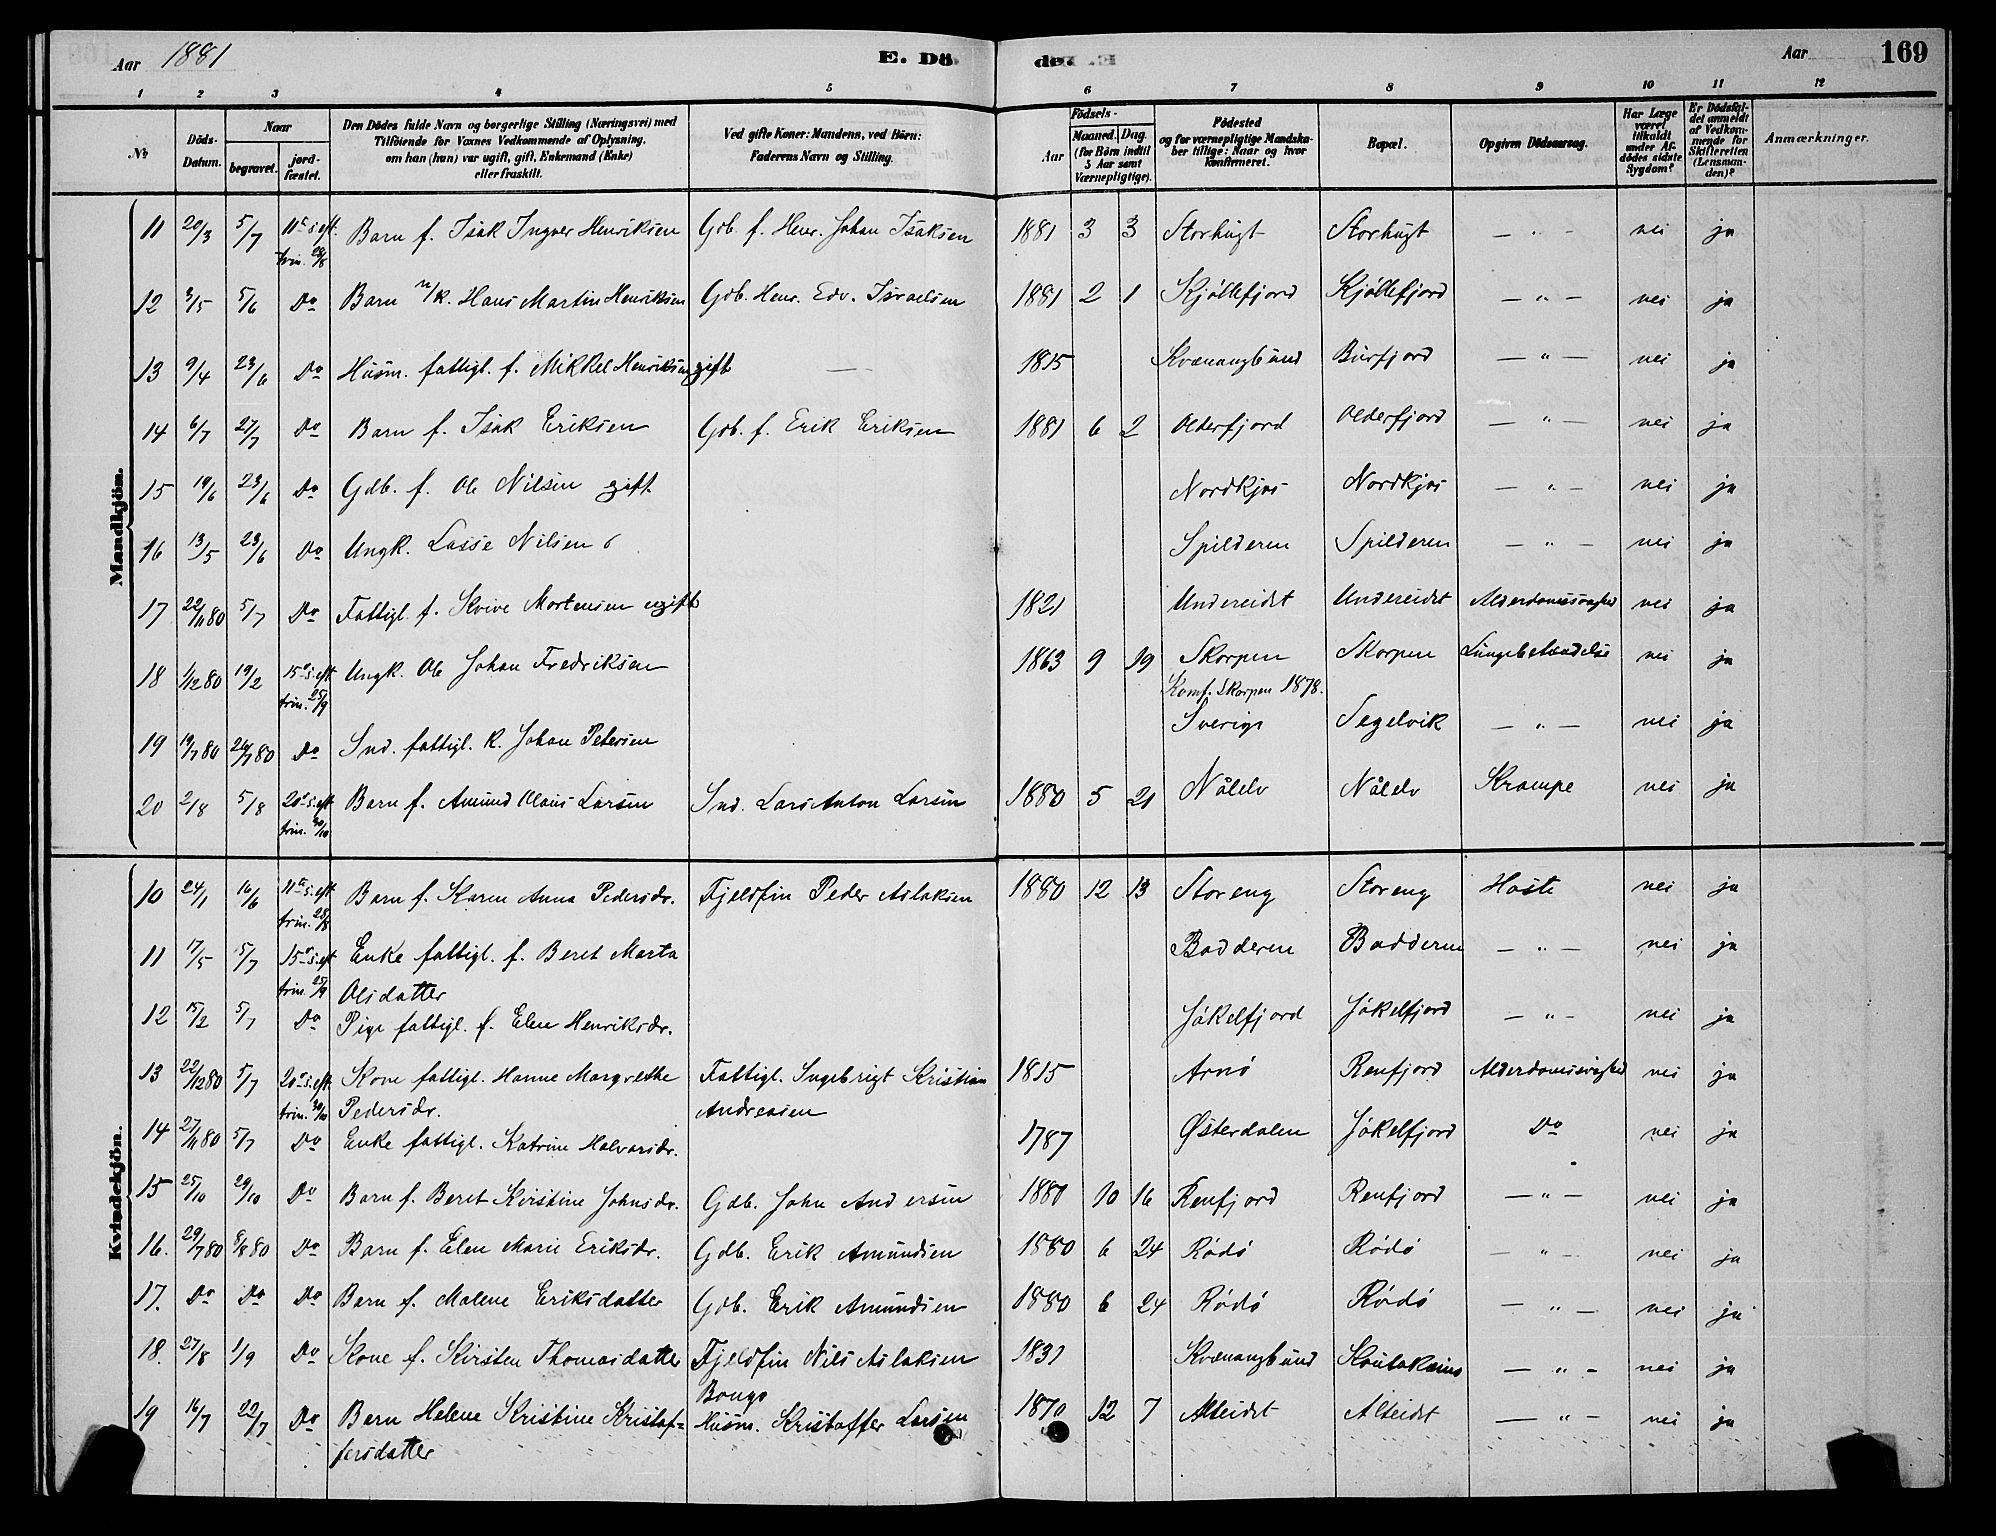 Aar 1881 E. Dö- de. Aar 169
1 2 3 4 5 6 7 8 9 10 11 12
№ Döds-Datum. Naar begravet. jord-fæstet. Den Dödes fulde Navn og borgerlige Stilling (Næringsvei) med Tilföiende for Voxnes Vedkommende af Oplysning, om han (hun) var ugift, gift, Enkemand (Enke) eller fraskilt. Ved gifte Koner: Mandens, ved Börn: Faderens Navn og Stilling. Födsels- Aar Maaned. Dag. (for Börn indtil 5 Aar samt Værnepligtige). Födested og for værnepligtige Mandska-ber tillige: Naar og hvor konfirmeret. Bopæl. Opgiven Dödsaarsag. Har Læge været tilkaldt under Af-dödes sidste Sygdom? Er Dödsfal-det anmeldt af Vedkom-mende for Skifteretten (Lensman-den)? Anmærkninger.
Mandkjön.
11 20/3 5/7 11te s. eft. trin. 28/8 Barn f. Isak Ingver Henriksen Gdb. f. Henr. Johan Isaksen 1881 3 3 Storbugt Storbugt — " — nei ja
12 3/5 5/6 Do Barn n/k. Hans Martin Henriksen Gdb. Henr. Edv. Israelsen 1881 2 1 Kjøllefjord Kjøllefjord — " — nei ja
13 9/4 23/6 Do Husm. fattigl. f. Mikkel Henriksen gift — 1815 Kvænangbund Burfjord — " — nei ja
14 6/7 27/7 Do Barn f. Isak Eriksen Gdb. f. Erik Eriksen 1881 6 2 Olderfjord Olderfjord — " — nei ja
15 19/6 23/6 Do Gdb. f. Ole Nilsen gift Nordkjos Nordkjos — " — nei ja
16 13/5 23/6 Do Ungk. Lasse Nilsen Spilderen Spilderen — " — nei ja
17 22/11 80 5/7 Do Fattigl. f. Mortensen ugift 1821 Undereidet Undereidet Alderdomssvaghed nei ja
18 1/12 80 19/2 15de s. eft. trin. 25/9 Ungk. Ole Johan Fredriksen 1863 9 19 Skorpen Skorpen Lungebetændelse nei ja
Konf. Skorpen 1878.
19 19/7 80 26/7 80 Do Ind. fattigl. k. Johan Petersen Sverige Segelvik — " — nei ja
20 2/8 5/8 20de s. eft. trin. 30/10 Barn f. Amund Olaus Larsen Ind. Lars Anton Larsen 1880 5 21 Nålelv Nålelv Krampe nei ja
Kvindekjön.
10 24/1 16/6 11te s. eft. trin. 28/8 Barn f. Karen Anna Pedersdr. Fjeldfin Peder Aslaksen 1880 12 13 Storeng Storeng Hoste nei ja
11 17/5 15/7 15de s. eft. trin. 25/9 Enke fattigl. f. Beret Marta Badderen Badderen — " — nei ja
Olsdatter
12 15/2 5/7 Do Pige fattigl. f. Elen Henriksdr. Jøkelfjord Jøkelfjord — " — nei ja
13 22/12 80 5/7 20de s. eft. trin. 30/10 Kone fattigl. Hanne Margrethe Fattigl. Ingebrigt Kristian 1815 Arnø Renfjord Alderdomssvaghed nei ja
Pedersdr. Andreasen
14 27/11 80 5/7 Do Enke fattigl. Katrine Halvorsdr. 1787 Østerdalen Jøkelfjord Do nei ja
15 25/10 29/10 Do Barn f. Beret Kirstine Johnsdr. Gdb. John Andersen 1880 10 16 Renfjord Renfjord — " — nei ja
16. 29/7 80 8/8 80 Do Barn f. Elen Marie Eriksdr. Gdb. Erik Amundsen 1880 6 24 Rødø Rødø — " — nei ja
17. Do Do Do Barn f. Malene Eriksdatter Gdb. Erik Amundsen 1880 6 24 Rødø Rødø — " — nei ja
18. 27/8 1/9 Do Kone f. Kirsten Thomasdatter Fjeldfin Nils Aslaksen 1831 Kvænangbund Koutokeino — " — nei ja
Bongo
19 16/7 22/7 Do Barn Helene Kristine Kristof- Husm. Kristoffer Larsen 1870 12 7 Alteidet Alteidet — " — nei ja
fersdatter